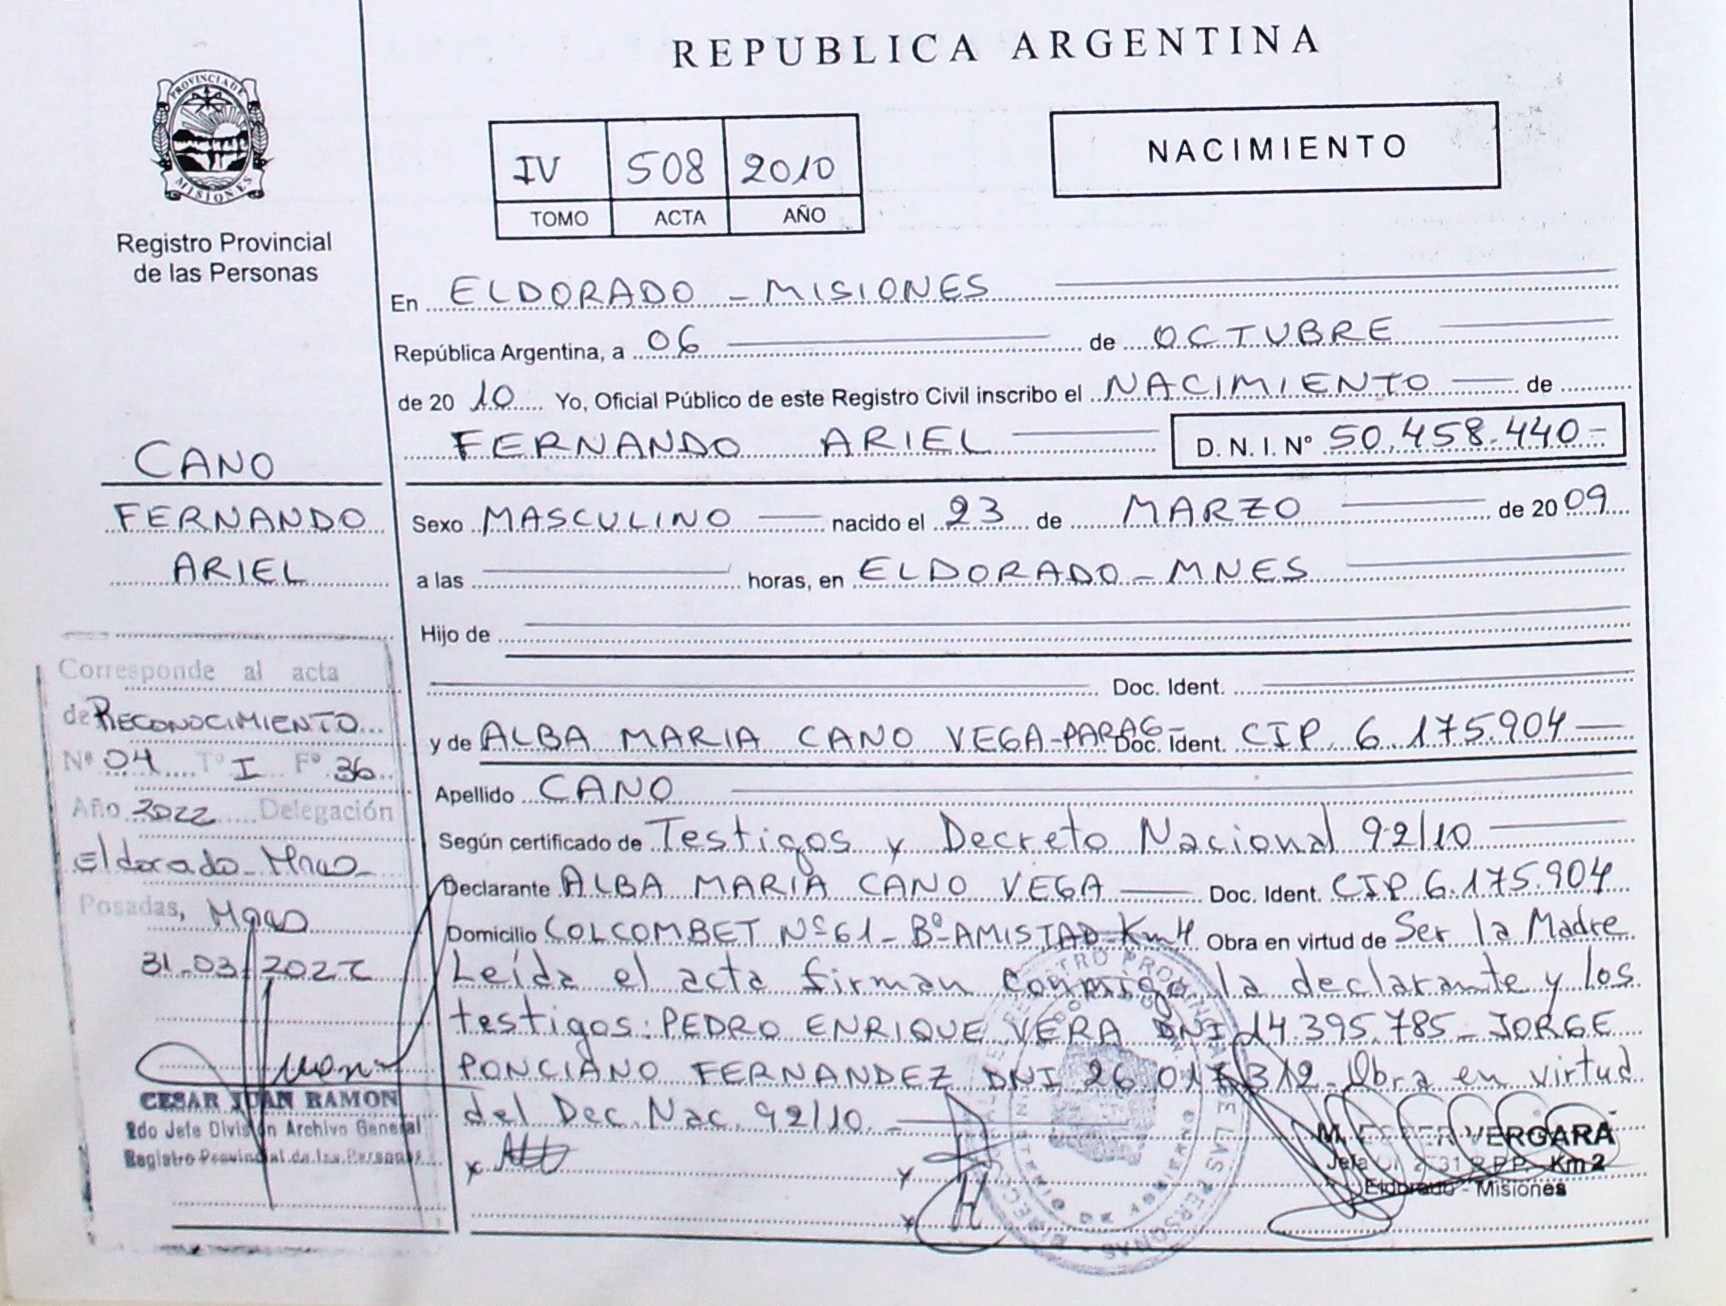 REPUBLICA ARGENTINA
PROVINCIA DE
MISIONES
Registro Provincial
de las Personas
IV 508 2010
TOMO ACTA AÑO
NACIMIENTO
En ELDORADO - MISIONES
República Argentina, a 06 de OCTUBRE
de 20 10 Yo, Oficial Público de este Registro Civil inscribo el NACIMIENTO de
FERNANDO ARIEL D. N. I. Nº 50.458.440-
CANO
FERNANDO
ARIEL
Sexo MASCULINO nacido el 23 de MARZO de 20 09
a las horas, en ELDORADO - MNES
Hijo de
Doc. Ident.
y de ALBA MARIA CANO VEGA-PARAG- Doc. Ident. CIP. 6.175.904
Apellido CANO
Según certificado de Testigos y Decreto Nacional 92/10
Declarante ALBA MARIA CANO VEGA Doc. Ident. CIP 6.175.904
Domicilio COLCOMBET Nº 61 - Bº AMISTAD - Km 4 Obra en virtud de Ser la Madre
Leída el acta firman conmigo la declarante y los
testigos: PEDRO ENRIQUE VERA DNI 14.395.785 - JORGE
PONCIANO FERNANDEZ DNI 26.017.312 - Obra en virtud
del Dec. Nac. 92/10.
Corresponde al acta
de RECONOCIMIENTO
Nº 04 Tº I Fº 36
Año 2022 Delegación
Eldorado - Mnes -
Posadas, Mnes
31-03-2022
CESAR JUAN RAMON
2do Jefe División Archivo General
Registro Provincial de las Personas
VERGARA
Km 2
Eldorado - Misiones